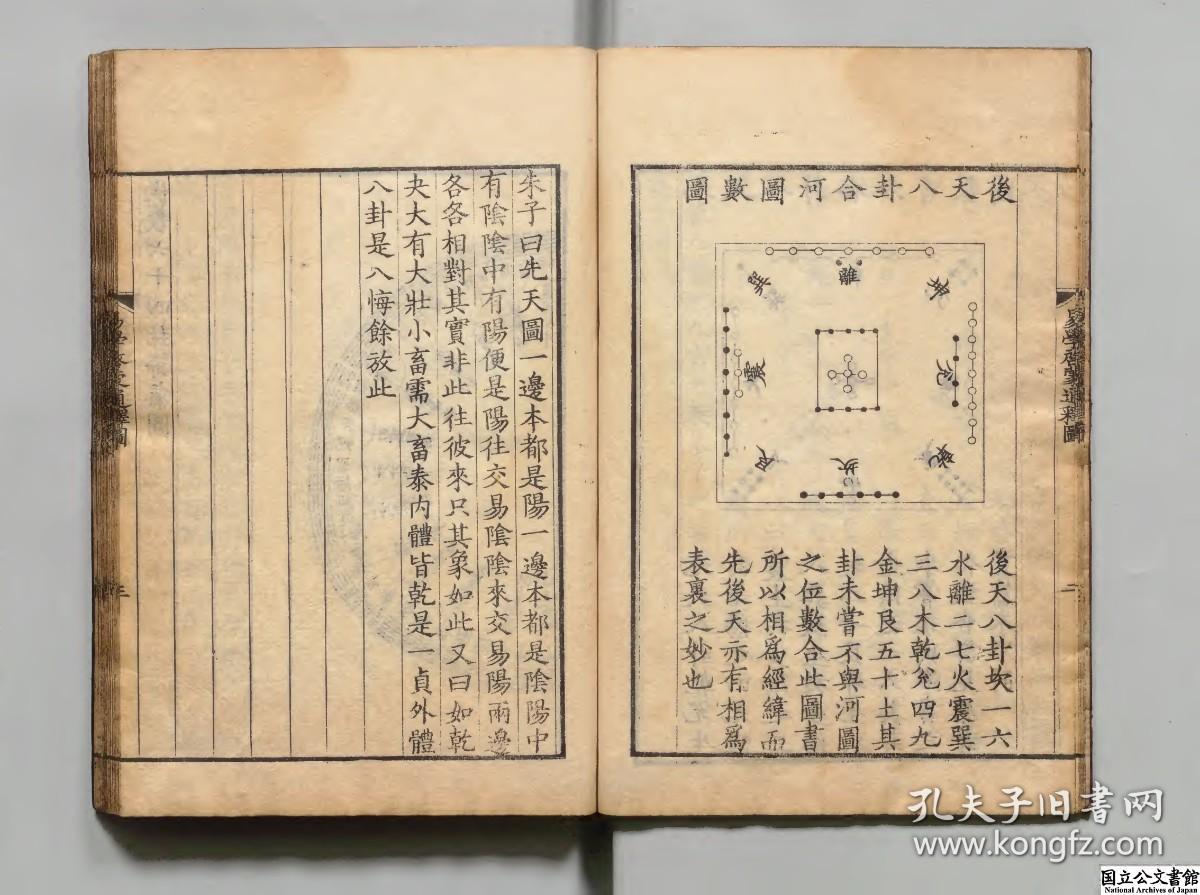 易學啓蒙通釋圖
二
後天八卦合河圖數圖
坤
離
巽
兌
震
乾
坎
艮
後天八卦坎一六
水離二七火震巽
三八木乾兌四九
金坤艮五十土其
卦未嘗不與河圖
之位數合此圖書
所以相爲經緯而
先後天亦有相爲
表裏之妙也
朱子曰先天圖一邊本都是陽一邊本都是陰陽中
有陰陰中有陽便是陽往交易陰陰來交易陽兩邊
各各相對其實非此往彼來只其象如此又曰如乾
夬大有大壯小畜需大畜泰内體皆乾是一貞外體
八卦是八悔餘放此
三
孔夫子旧書网
www.kongfz.com
国立公文書館
National Archives of Japan